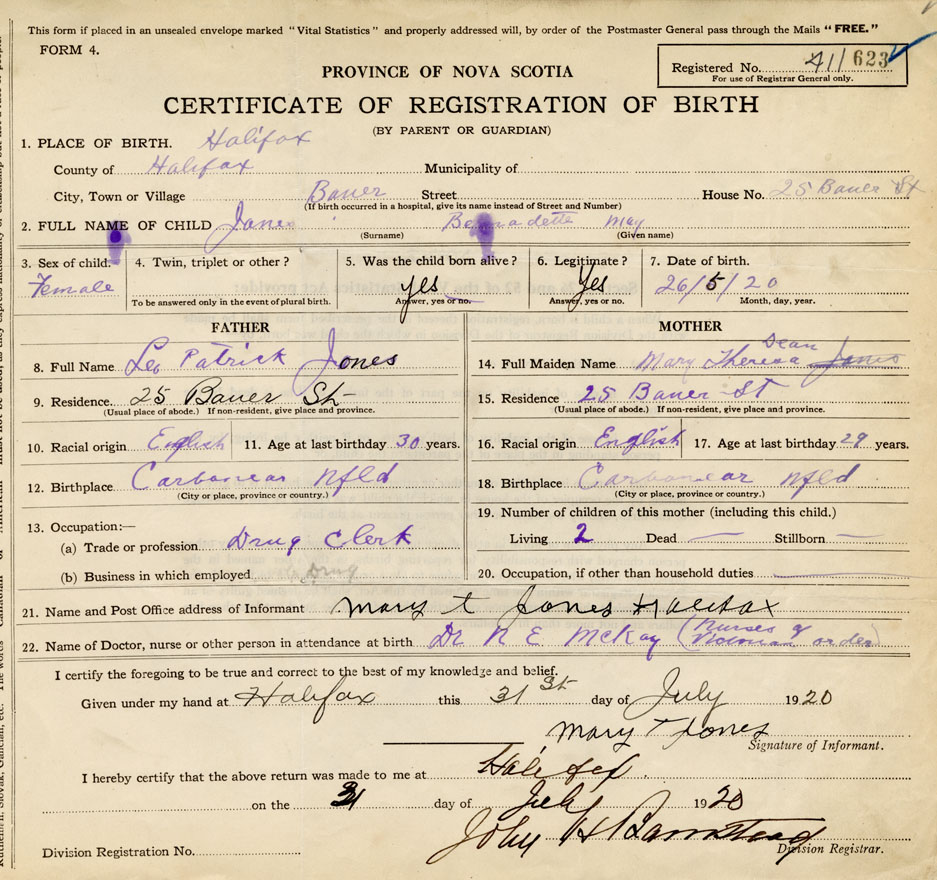 This form if placed in an unsealed envelope marked "Vital Statistics" and properly addressed will, by order of the Postmaster General pass through the Mails "FREE."
FORM 4.
Registered No. 41/623
For use of Registrar General only.
PROVINCE OF NOVA SCOTIA
CERTIFICATE OF REGISTRATION OF BIRTH
(BY PARENT OR GUARDIAN)
1. PLACE OF BIRTH. Halifax
County of Halifax Municipality of
City, Town or Village Bauer Street House No. 25 Bauer St
(If birth occurred in a hospital, give its name instead of Street and Number)
2. FULL NAME OF CHILD Jones Bernadette May
(Surname) (Given name)
3. Sex of child. 4. Twin, triplet or other? 5. Was the child born alive? 6. Legitimate? 7. Date of birth.
Female yes Yes 26/5/20
To be answered only in the event of plural birth. Answer, yes or no. Answer, yes or no. Month, day, year.
FATHER MOTHER
8. Full Name Leo Patrick Jones 14. Full Maiden Name Mary Theresa Jones Dean
9. Residence. 25 Bauer St 15. Residence 25 Bauer St
(Usual place of abode.) If non-resident, give place and province. (Usual place of abode.) If non-resident, give place and province.
10. Racial origin English 11. Age at last birthday 30 years. 16. Racial origin English 17. Age at last birthday 29 years.
12. Birthplace Carbonear Nfld 18. Birthplace Carbonear Nfld
(City or place, province or country.) (City or place, province or country.)
13. Occupation:— 19. Number of children of this mother (including this child.)
(a) Trade or profession Drug Clerk Living 2 Dead — Stillborn —
(b) Business in which employed Drug 20. Occupation, if other than household duties
21. Name and Post Office address of Informant Mary T Jones Halifax
22. Name of Doctor, nurse or other person in attendance at birth Dr N E McKay (Nurses of Victorian order)
I certify the foregoing to be true and correct to the best of my knowledge and belief.
Given under my hand at Halifax this 31st day of July 1920
Mary T Jones
Signature of Informant.
I hereby certify that the above return was made to me at Halifax
on the 31 day of July 1920
John H Barnstead
Division Registration No. Division Registrar.